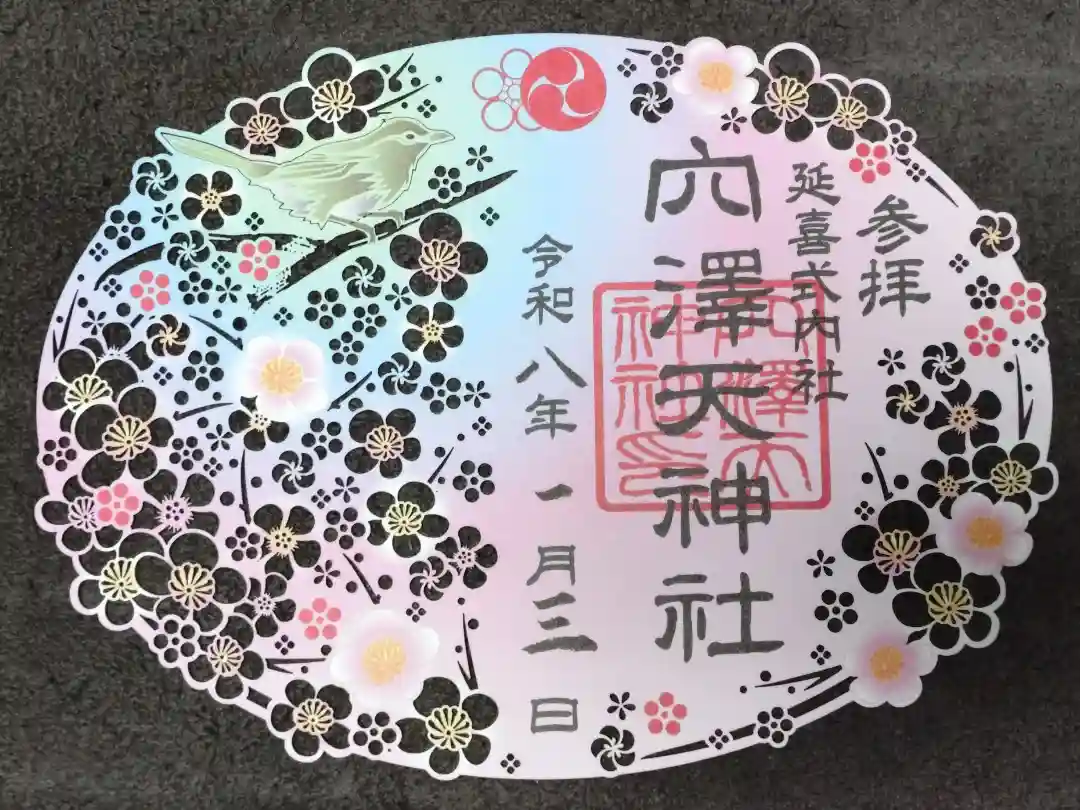 参拝
延喜式内社
穴澤天神社
穴澤天
神社印
令和八年一月三日